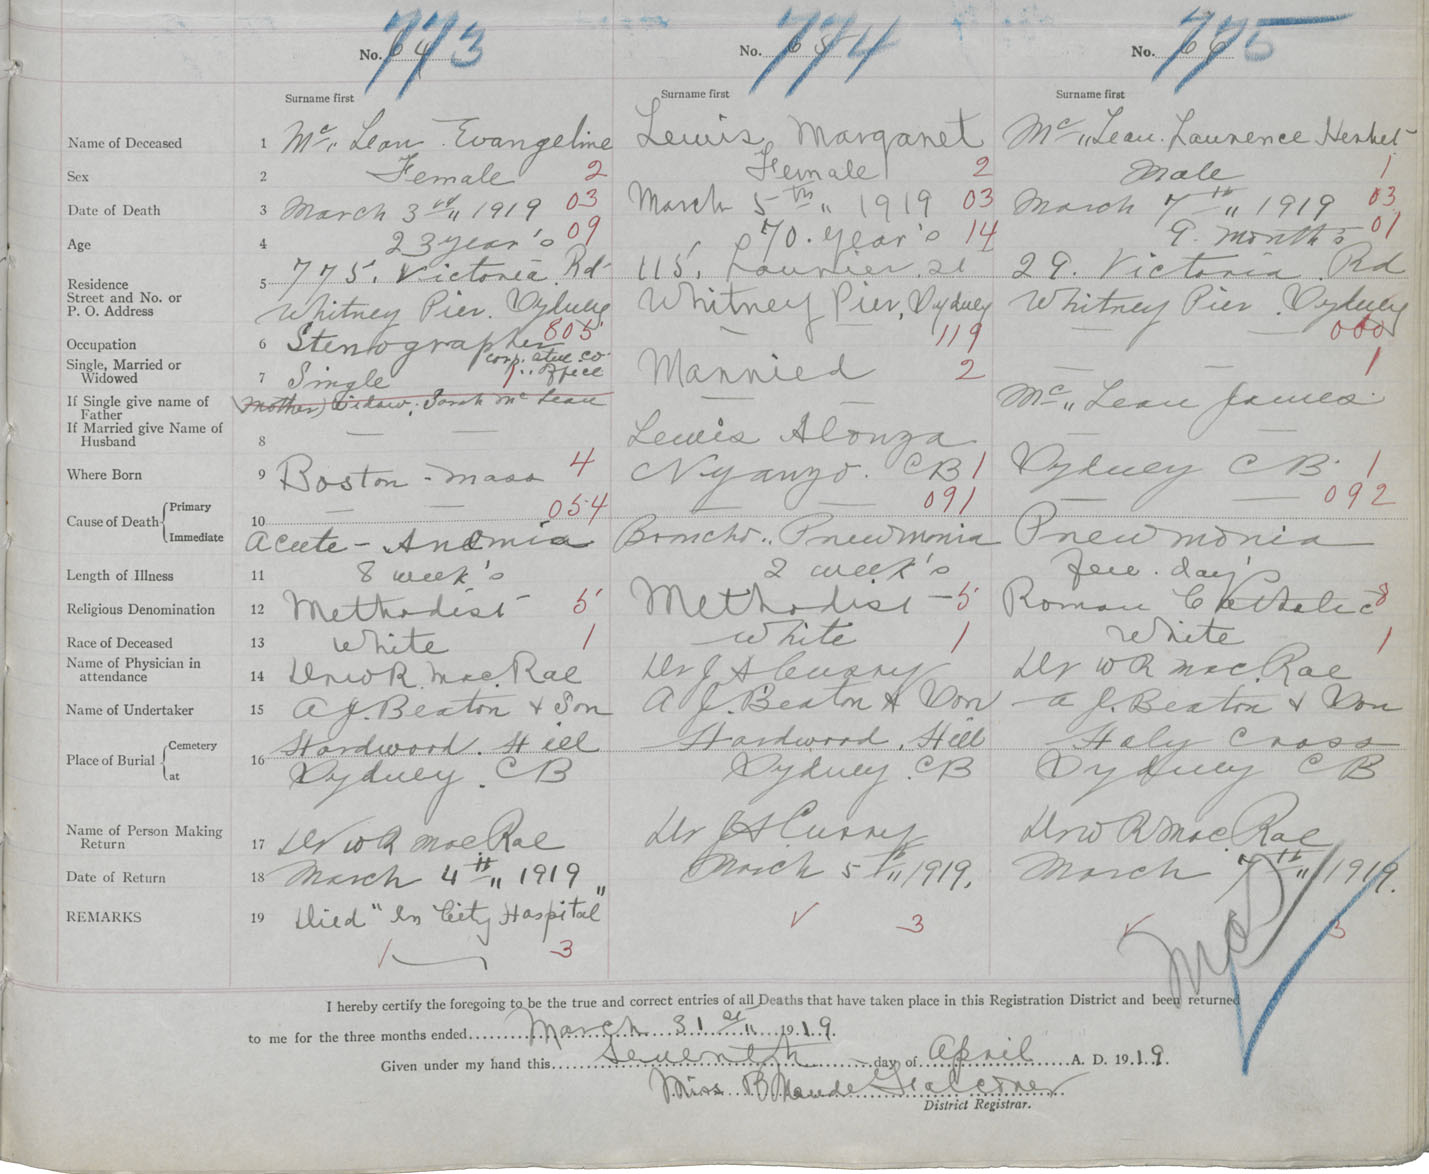 773 774 775
No. 64 No. 65 No. 66
Surname first Surname first Surname first
Name of Deceased 1 Mc„ Lean Evangeline Lewis Margaret Mc„ Lean Laurence Herbet
Sex 2 Female 2 Female 2 Male 1
Date of Death 3 March 3rd„ 1919 03 March 5th„ 1919 03 March 7th„ 1919 03
Age 4 23 year's 09 70. year's 14 9. months 01
Residence
Street and No. or
P. O. Address
5 775. Victoria Rd 115. Laurier. st 29. Victoria Rd
Whitney Pier. Sydney Whitney Pier, Sydney Whitney Pier. Sydney
Occupation 6 Stenographer 805 — — 119 — — 000
corp. steel. co.
office
Single, Married or
Widowed
7 Single 1 Married 2 — — 1
If Single give name of
Father
(Mother) Widow. Sarah Mc Lean — — Mc„ Lean James
If Married give Name of
Husband
8 — — Lewis Alonza — —
Where Born 9 Boston - Mass 4 Nyanzo. CB 1 Sydney CB 1
Cause of Death Primary 10 — — 054 — — 091 — — 092
Immediate Acute - Anemia Broncho.. Pnewmonia Pnewmonia
Length of Illness 11 8 week's 2 week's few. day's
Religious Denomination 12 Methodist 5 Methodist 5 Roman Catholic 8
Race of Deceased 13 White 1 White 1 White 1
Name of Physician in
attendance
14 Dr W R. Mac. Rae Dr J A Curry Dr W R Mac. Rae
Name of Undertaker 15 A J. Beaton & Son A J. Beaton & Son A J. Beaton & Son
Place of Burial Cemetery
at
16 Hardwood. Hill Hardwood. Hill Holy Cross
Sydney. CB Sydney. CB Sydney CB
Name of Person Making
Return
17 Dr W R Mac Rae Dr J A Curry Dr W R Mac. Rae
Date of Return 18 March 4th„ 1919 March 5th„ 1919. March 7th„ 1919.
REMARKS 19 Died "In City Hospital"
3 3 3
I hereby certify the foregoing to be the true and correct entries of all Deaths that have taken place in this Registration District and been returned
to me for the three months ended March 31st„ 1919.
Given under my hand this Seventh day of April A. D. 1919.
Miss. B Maude Falconer
District Registrar.